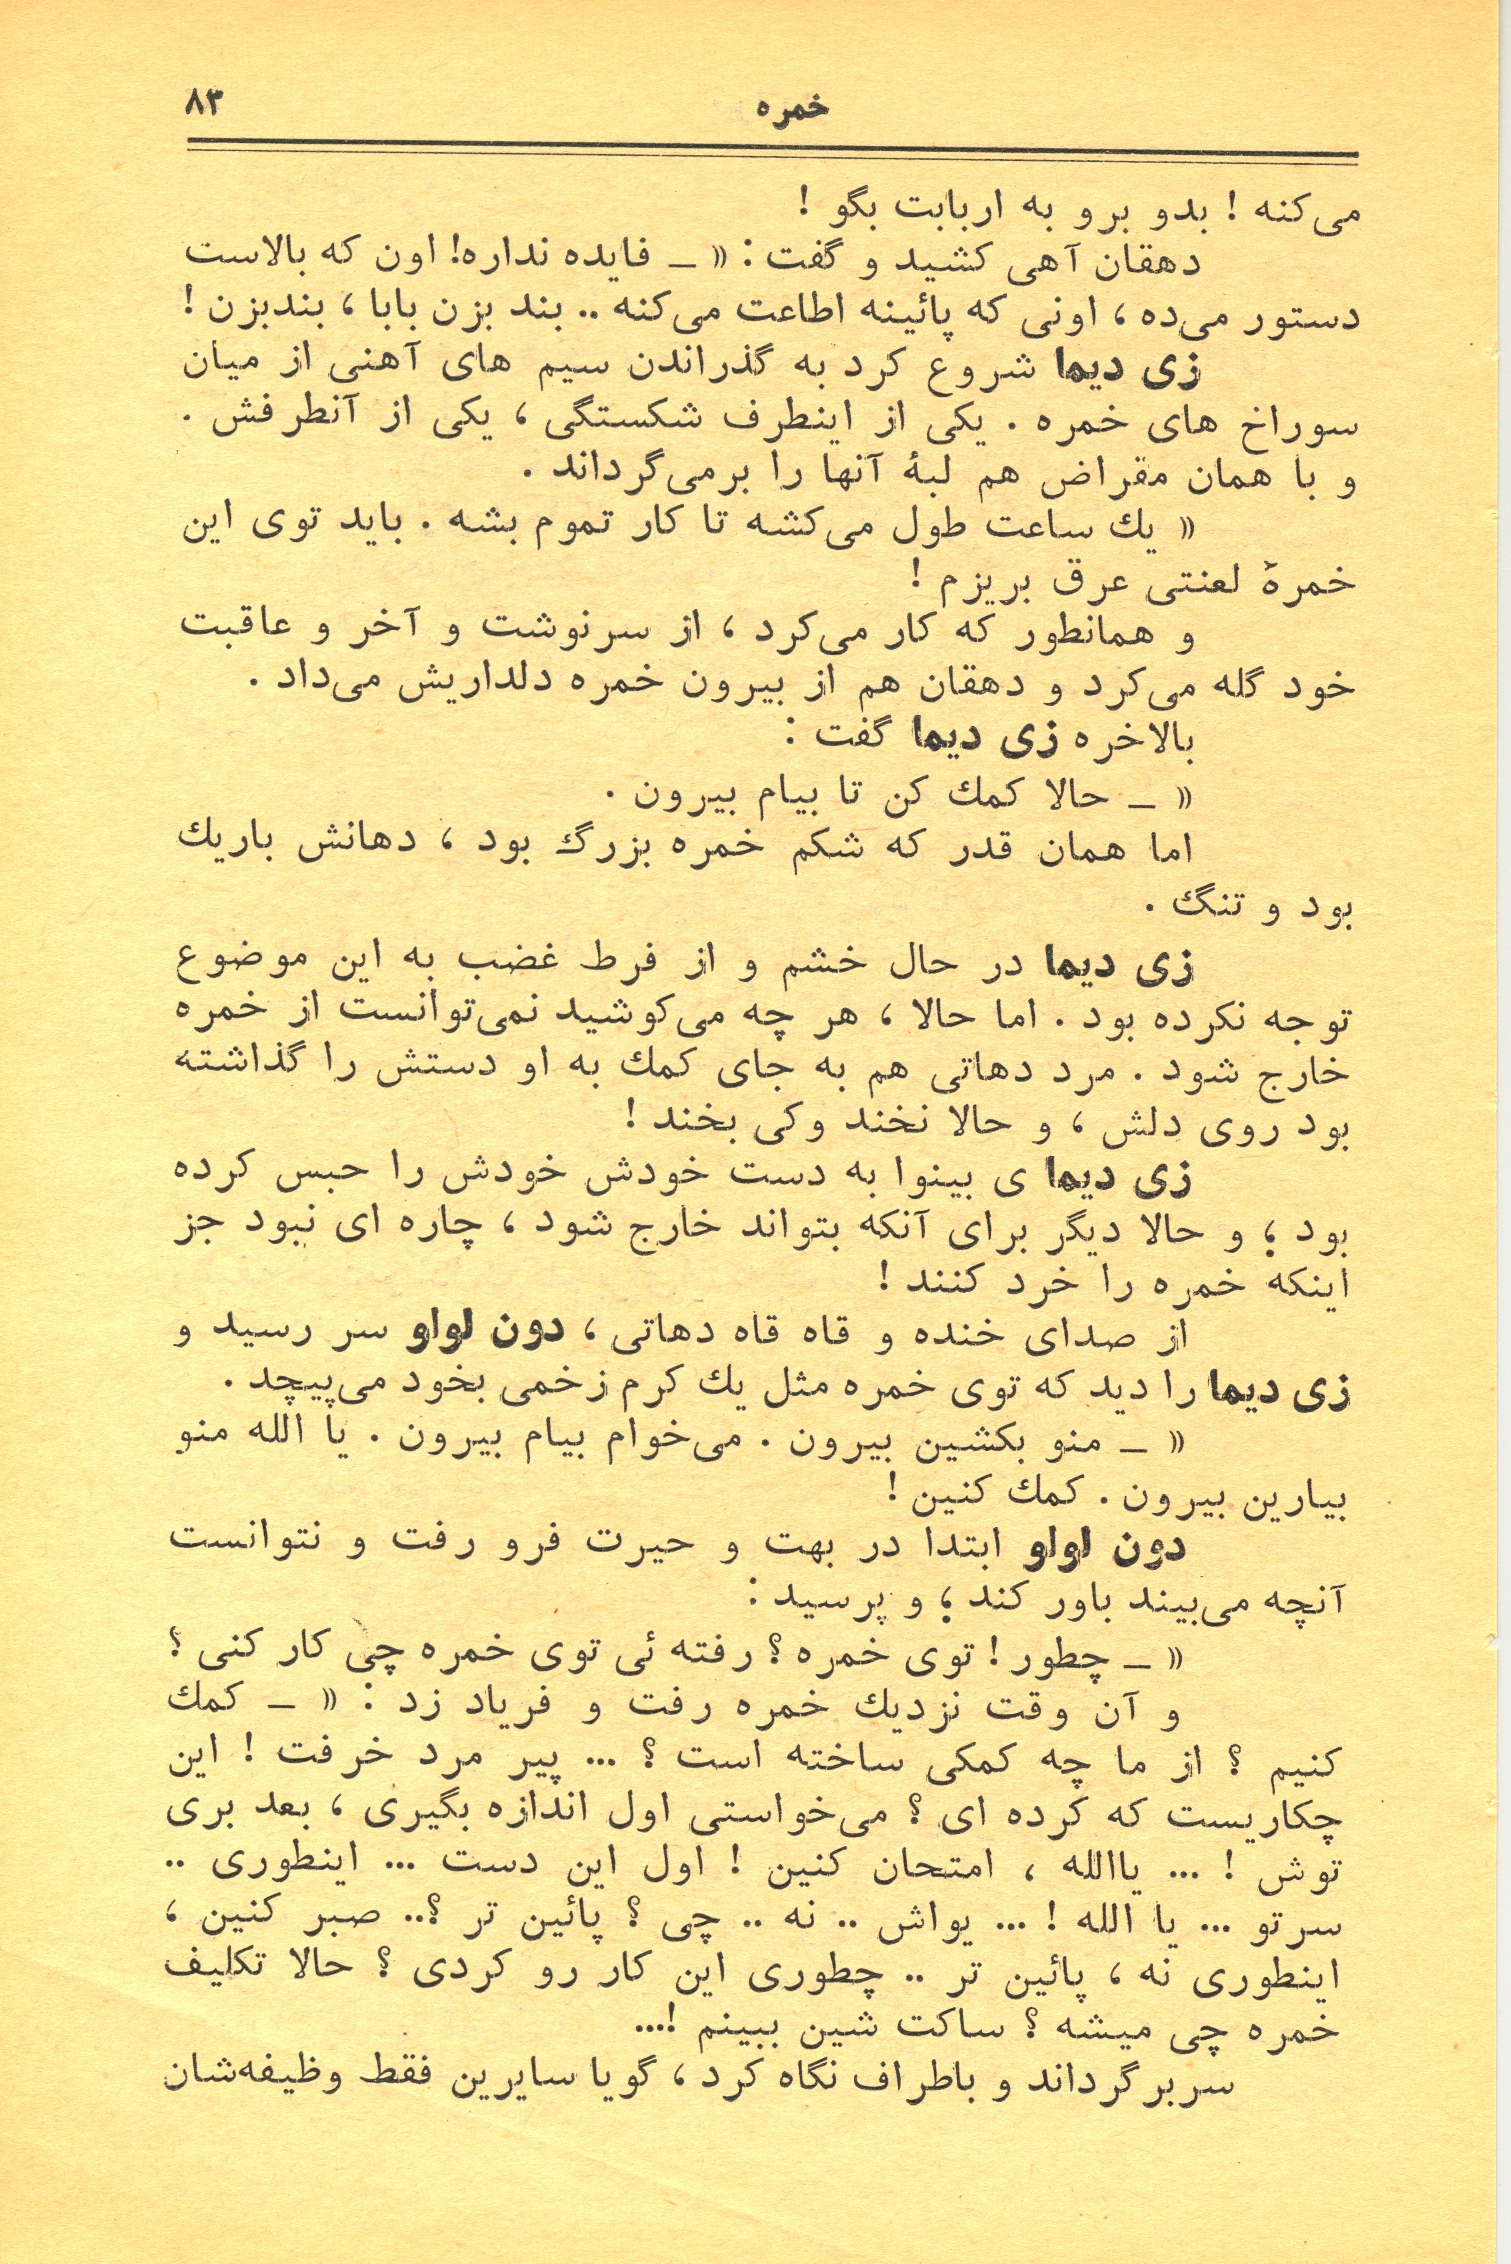 خمره
۸۳
می‌کنه ! بدو برو به اربابت بگو !
دهقان آهی کشید و گفت : « ـ فایده نداره! اون که بالاست
دستور می‌ده ، اونی که پائینه اطاعت می‌کنه .. بند بزن بابا ، بندبزن !
زی دیما شروع کرد به گذراندن سیم های آهنی از میان
سوراخ های خمره . یکی از اینطرف شکستگی ، یکی از آنطرفش .
و با همان مقراض هم لبهٔ آنها را برمی‌گرداند .
« یك ساعت طول می‌کشه تا کار تموم بشه . باید توی این
خمرهٔ لعنتی عرق بریزم !
و همانطور که کار می‌کرد ، از سرنوشت و آخر و عاقبت
خود گله می‌کرد و دهقان هم از بیرون خمره دلداریش می‌داد .
بالاخره زی دیما گفت :
« ـ حالا کمك کن تا بیام بیرون .
اما همان قدر که شکم خمره بزرگ بود ، دهانش باریك
بود و تنگ .
زی دیما در حال خشم و از فرط غضب به این موضوع
توجه نکرده بود . اما حالا ، هر چه می‌کوشید نمی‌توانست از خمره
خارج شود . مرد دهاتی هم به جای کمك به او دستش را گذاشته
بود روی دلش ، و حالا نخند وکی بخند !
زی دیما ی بینوا به دست خودش خودش را حبس کرده
بود ؛ و حالا دیگر برای آنکه بتواند خارج شود ، چاره ای نبود جز
اینکه خمره را خرد کنند !
از صدای خنده و قاه قاه دهاتی ، دون لولو سر رسید و
زی دیما را دید که توی خمره مثل یك کرم زخمی بخود می‌پیچد .
« ـ منو بکشین بیرون . می‌خوام بیام بیرون . یا الله منو
بیارین بیرون . کمك کنین !
دون لولو ابتدا در بهت و حیرت فرو رفت و نتوانست
آنچه می‌بیند باور کند ؛ و پرسید :
« ـ چطور ! توی خمره ؟ رفته ئی توی خمره چی کار کنی ؟
و آن وقت نزدیك خمره رفت و فریاد زد : « ـ کمك
کنیم ؟ از ما چه کمکی ساخته است ؟ ... پیر مرد خرفت ! این
چکاریست که کرده ای ؟ می‌خواستی اول اندازه بگیری ، بعد بری
توش ! ... یاالله ، امتحان کنین ! اول این دست ... اینطوری ..
سرتو ... یا الله ! ... یواش .. نه .. چی ؟ پائین تر ؟.. صبر کنین ،
اینطوری نه ، پائین تر .. چطوری این کار رو کردی ؟ حالا تکلیف
خمره چی میشه ؟ ساکت شین ببینم !...
سربرگرداند و باطراف نگاه کرد ، گویا سایرین فقط وظیفه‌شان